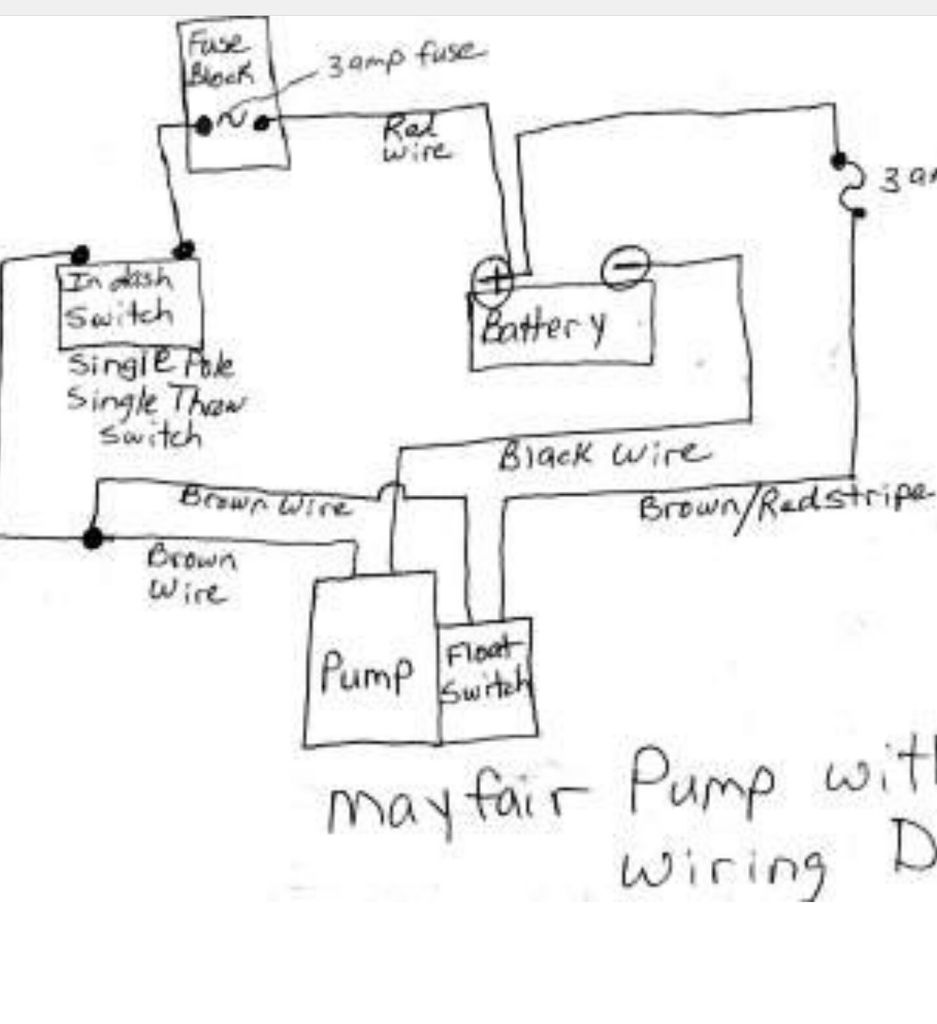 Fuse
Block
3 amp fuse
Red
Wire
3 am
+
−
In dash
Switch
Battery
Single Pole
Single Throw
Switch
Black Wire
Brown Wire
Brown/Redstripe
Brown
Wire
Pump
Float
Switch
mayfair Pump with
Wiring D